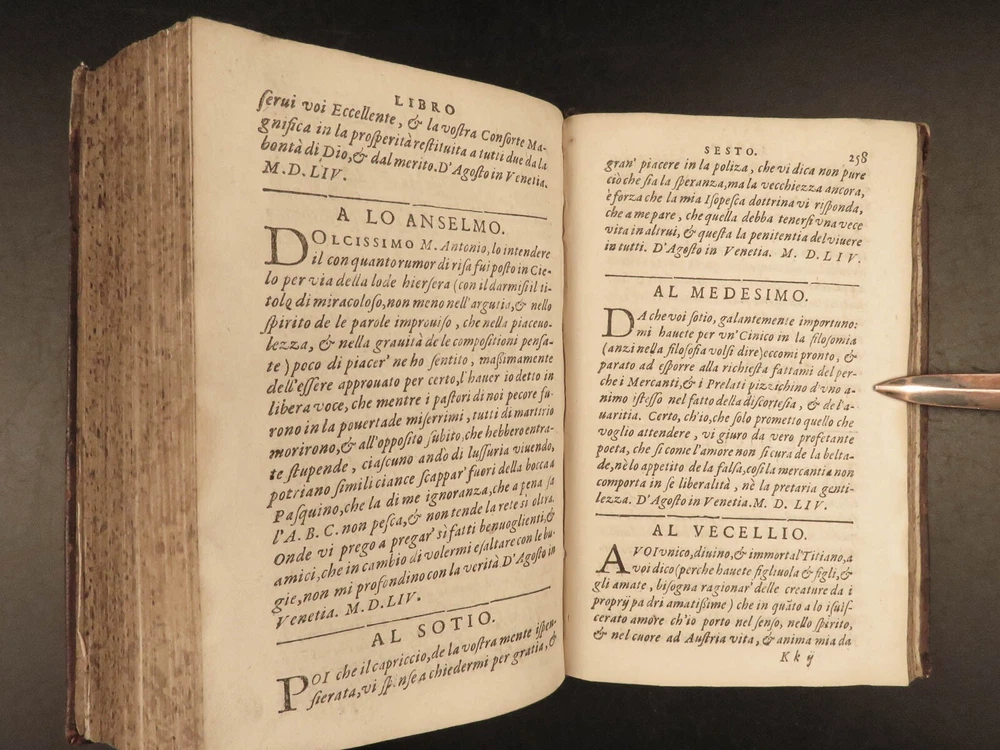 LIBRO
ſerui voi Eccellente, & la voſtra Conſorte Ma-
gnifica in la proſperità reſtituita a tutti due da la
bontà di Dio, & dal merito. D'Agoſto in Venetia.
M. D. LIV.
A LO ANSELMO.
DOLCISSIMO M. Antonio, lo intendere
il con quanto rumor di riſa fui poſto in Cie-
lo per via della lode hierſera (con il darmiſi il ti-
tolo di miracoloſo, non meno nell'argutia, & nello
ſpirito de le parole improuiſo, che nella piaceuo-
lezza, & nella grauità de le compoſitioni penſa-
te) poco di piacer' ne ho ſentito, maßimamente
dell'eſſere approuato per certo, l'hauer io detto in
libera voce, che mentre i paſtori di noi pecore fu-
rono in la pouertade miſerrimi, tutti di martirio
morirono, & all'oppoſito ſubito, che hebbero entra-
te ſtupende, ciaſcuno andò di luſſuria viuendo,
potriano ſimili ciance ſcappar' fuori della bocca a
Paſquino, che la di me ignoranza, che a pena ſa
l'A. B. C. non peſca, & non tende la rete sì oltra.
Onde vi prego a pregar' sì fatti beniuoglienti, &
amici, che in cambio di volermi eſaltare con le bu-
gie, non mi profondino con la verità D'Agoſto in
Venetia. M. D. LIV.
AL SOTIO.
POI che il capriccio, de la voſtra mente iſpen-
ſierata, vi ſpinſe a chiedermi per gratia, &
SESTO. 258
gran' piacere in la poliza, che vi dica non pure
ciò che ſia la ſperanza, ma la vecchiezza ancora,
è forza che la mia Iſopeſca dottrina vi riſponda,
che a me pare, che quella debba tenerſi vna vece
vita in altrui, & queſta la penitentia del viuere
in tutti. D'Agoſto in Venetia. M. D. LIV.
AL MEDESIMO.
DA che voi ſotio, galantemente importuno:
mi hauete per vn' Cinico in la filoſomia
(anzi nella filoſofia volſi dire) eccomi pronto, &
parato ad eſporre alla richieſta fattami del per-
che i Mercanti, & i Prelati pizzichino d'vno a-
nimo iſteſſo nel fatto della diſcorteſia, & de l'a-
uaritia. Certo, ch'io, che ſolo prometto quello che
voglio attendere, vi giuro da vero profetante
poeta, che ſi come l'amore non ſi cura de la belta-
de, nè lo appetito de la falſa, coſi la mercantia non
comporta in ſe liberalità, nè la pretaria genti-
lezza. D'Agoſto in Venetia. M. D. LIV.
AL VECELLIO.
A VOI vnico, diuino, & immortal' Titiano, a
voi dico (perche hauete figliuola & figli, &
gli amate, biſogna ragionar' delle creature da i
proprij padri amatißime) che in quãto a lo iſuiſ-
cerato amore ch'io porto nel ſenſo, nello ſpirito,
& nel cuore ad Auſtria vita, & anima mia da
K k ij